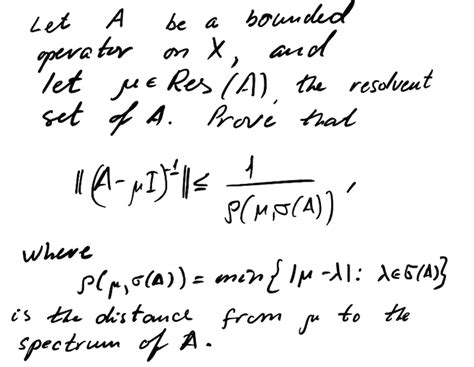 Let A be a bounded
operator on X, and
let μ ∈ Res (A), the resolvent
set of A. Prove that
‖(A-μI)⁻¹‖ ≤ 1/ρ(μ,σ(A)),
where
ρ(μ,σ(A)) = min{|μ-λ|: λ∈σ(A)}
is the distance from μ to the
spectrum of A.